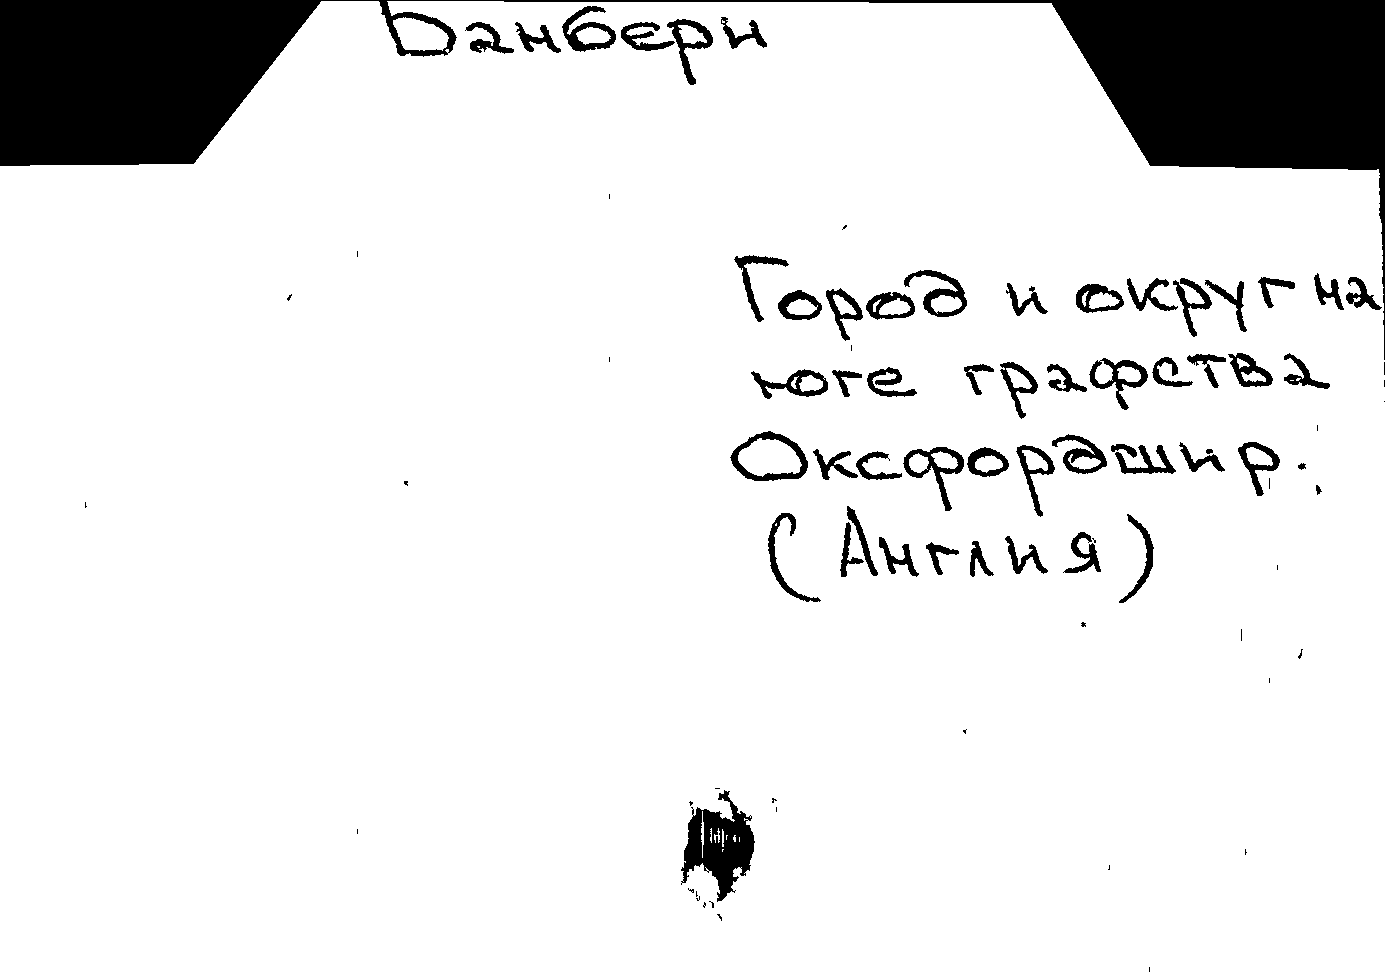 Банбери
Город и округ на
юге графства
Оксфордшир.
(Англия)